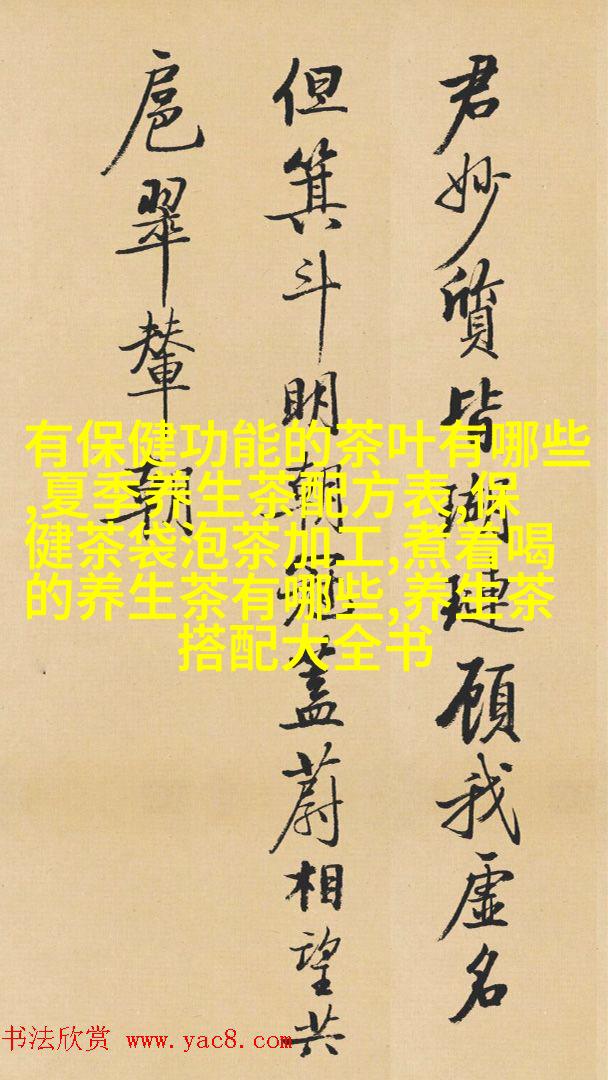 君妙質皆瑚璉顧我虛名
但箕斗明朝冠蓋蔚相望共
扈翠輦朝
有保健功能的茶叶有哪些
,夏季养生茶配方表,保
健茶袋泡茶加工,煮着喝
的养生茶有哪些,养生茶
搭配大全书
书法欣赏 www.yac8.com